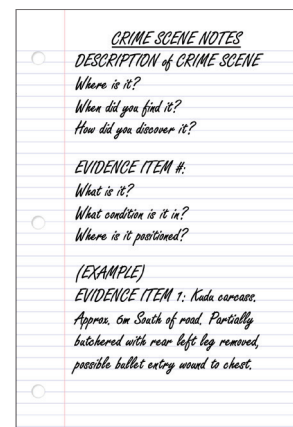 CRIME SCENE NOTES
DESCRIPTION of CRIME SCENE
Where is it?
When did you find it?
How did you discover it?
EVIDENCE ITEM #:
What is it?
What condition is it in?
Where is it positioned?
(EXAMPLE)
EVIDENCE ITEM 1: Kudu carcass.
Approx. 6m South of road. Partially
butchered with rear left leg removed,
possible bullet entry wound to chest.